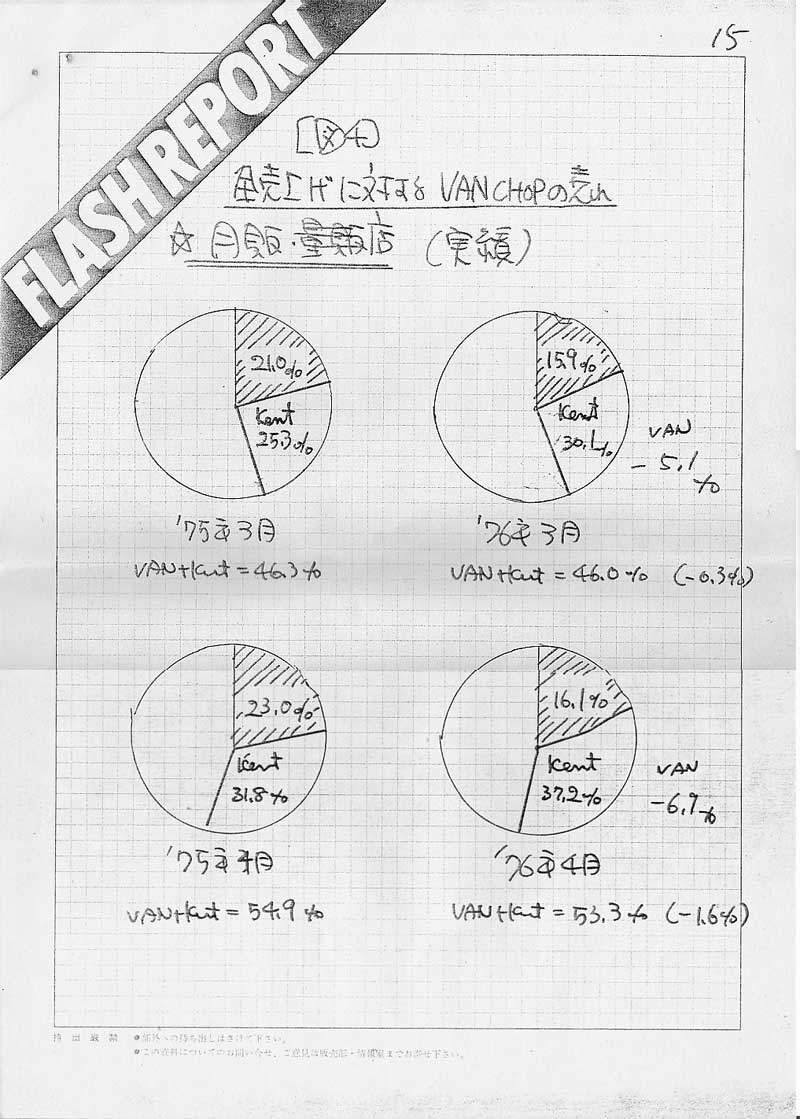 15
FLASH REPORT
[図4]
全売上げに対する VAN CHOPの売れ
☆ 月販・量販店 (実績)
21.0%
Kent
25.3%
'75年3月
VAN+Kent = 46.3%
15.9%
Kent
30.1%
VAN
- 5.1
%
'76年3月
VAN+Kent = 46.0% (-0.3%)
23.0%
Kent
31.8%
'75年4月
VAN+Kent = 54.9%
16.1%
Kent
37.2%
VAN
-6.9%
'76年4月
VAN+Kent = 53.3% (-1.6%)
持出厳禁 ●部外への持ち出しはさけて下さい。
●この資料についてのお問い合せ、ご意見は販売部・情報室までお寄せ下さい。